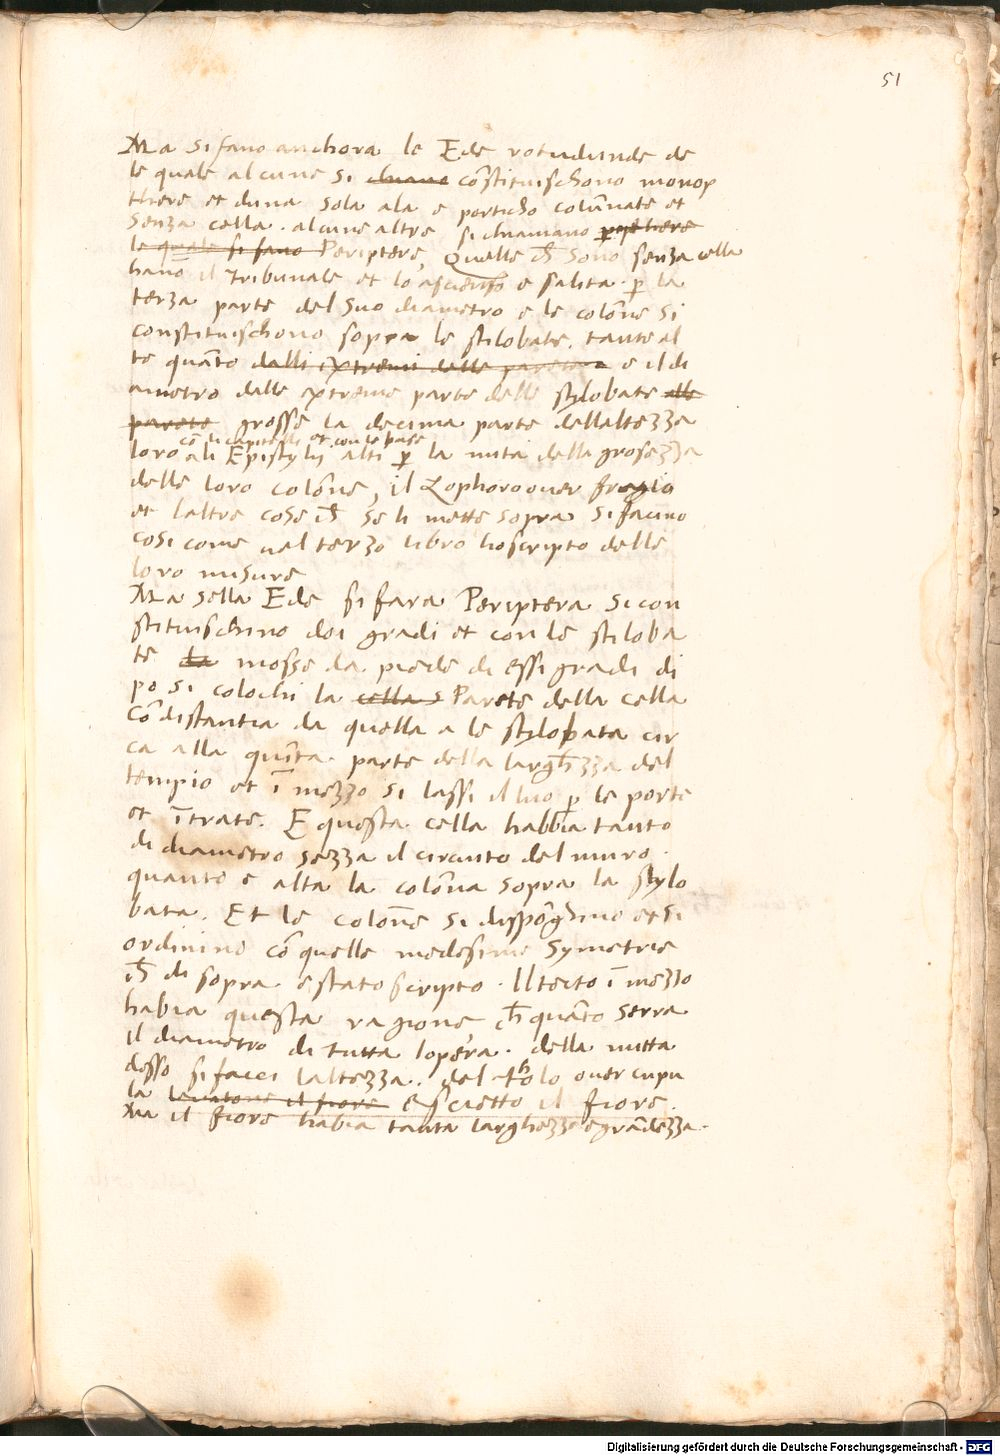 51
Ma si fano anchora le Ede rotudunde de
le quale alcune si chiama constituischono monop
there et duna sola ala e porticho colũnate et
senza cella . alcune altre si chiamano peripthere
le quale si fano Periptere, Quelle ch̃ sono senza cella
hano il tribunale et lo ascienso e salita . p̱ la
terza parte del suo diametro e le colõne si
constituischono sopra le stilobate . tante al
te quãto dalli extremi delle parete e il di
ametro dalle extreme parte delle stylobate alle
parete grosse la decima parte dellaltezza
cõ li capitelli et con le base
loro ali Epistylij alti p̱ la mita della grosezza
delle loro colõne, il Zophoro over fregio
et laltre cose ch̃ se li mette sopra si facino
cosi come nel terzo libro ho scripto delle
loro misure
Ma sella Ede si fara Periptera si con
stituischino doi gradi et con le stiloba
te da mosse da . piede di essi gradi di
po si colochi la cella s Parete della cella
cõ distantia da quella a le stylobata cir
ca alla quĩta . parte della largh̃zza del
tempio et ĩ mezzo si lassi il luo p̱ le porte
et ĩtrate . E questa cella habbia tanto
di diametro sezza il circuito del muro .
quanto e alta la colõna sopra la stylo
bata . Et le colõne si dispõghino et si
ordinino cõ quelle medesime symetrie
ch̃ di sopra e stato scripto . Il tecto ĩ mezzo
habia questa ragione ch̃ quãto serra
il diametro di tutta lopera . della mitta
desso si facci laltezza . del tholo over cupu
la levatone il fiore escietto il fiore .
Ma il fiore habia tanta larghezza e grãdezza .
Digitalisierung gefördert durch die Deutsche Forschungsgemeinschaft - DFG